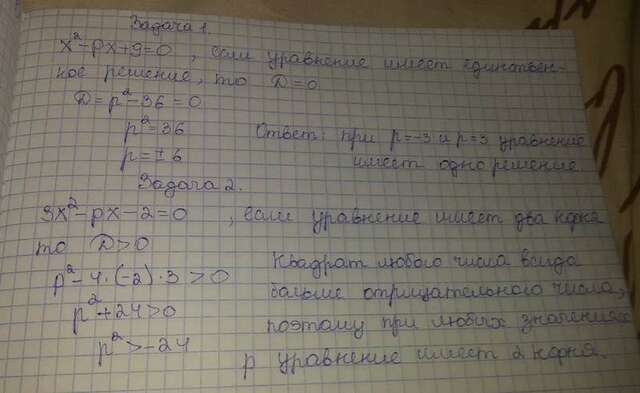 Задача 1.
x²-px+9=0, если уравнение имеет единствен-
ное решение, то D=0.
D=p²-36=0
p²=36
p=±6
Ответ: при p=-3 и p=3 уравнение
имеет одно решение
Задача 2.
3x²-px-2=0, если уравнение имеет два корня
то D>0
p²-4·(-2)·3>0
p²+24>0
p²>-24
Квадрат любого числа всегда
больше отрицательного числа,
поэтому при любых значениях
p уравнение имеет 2 корня.